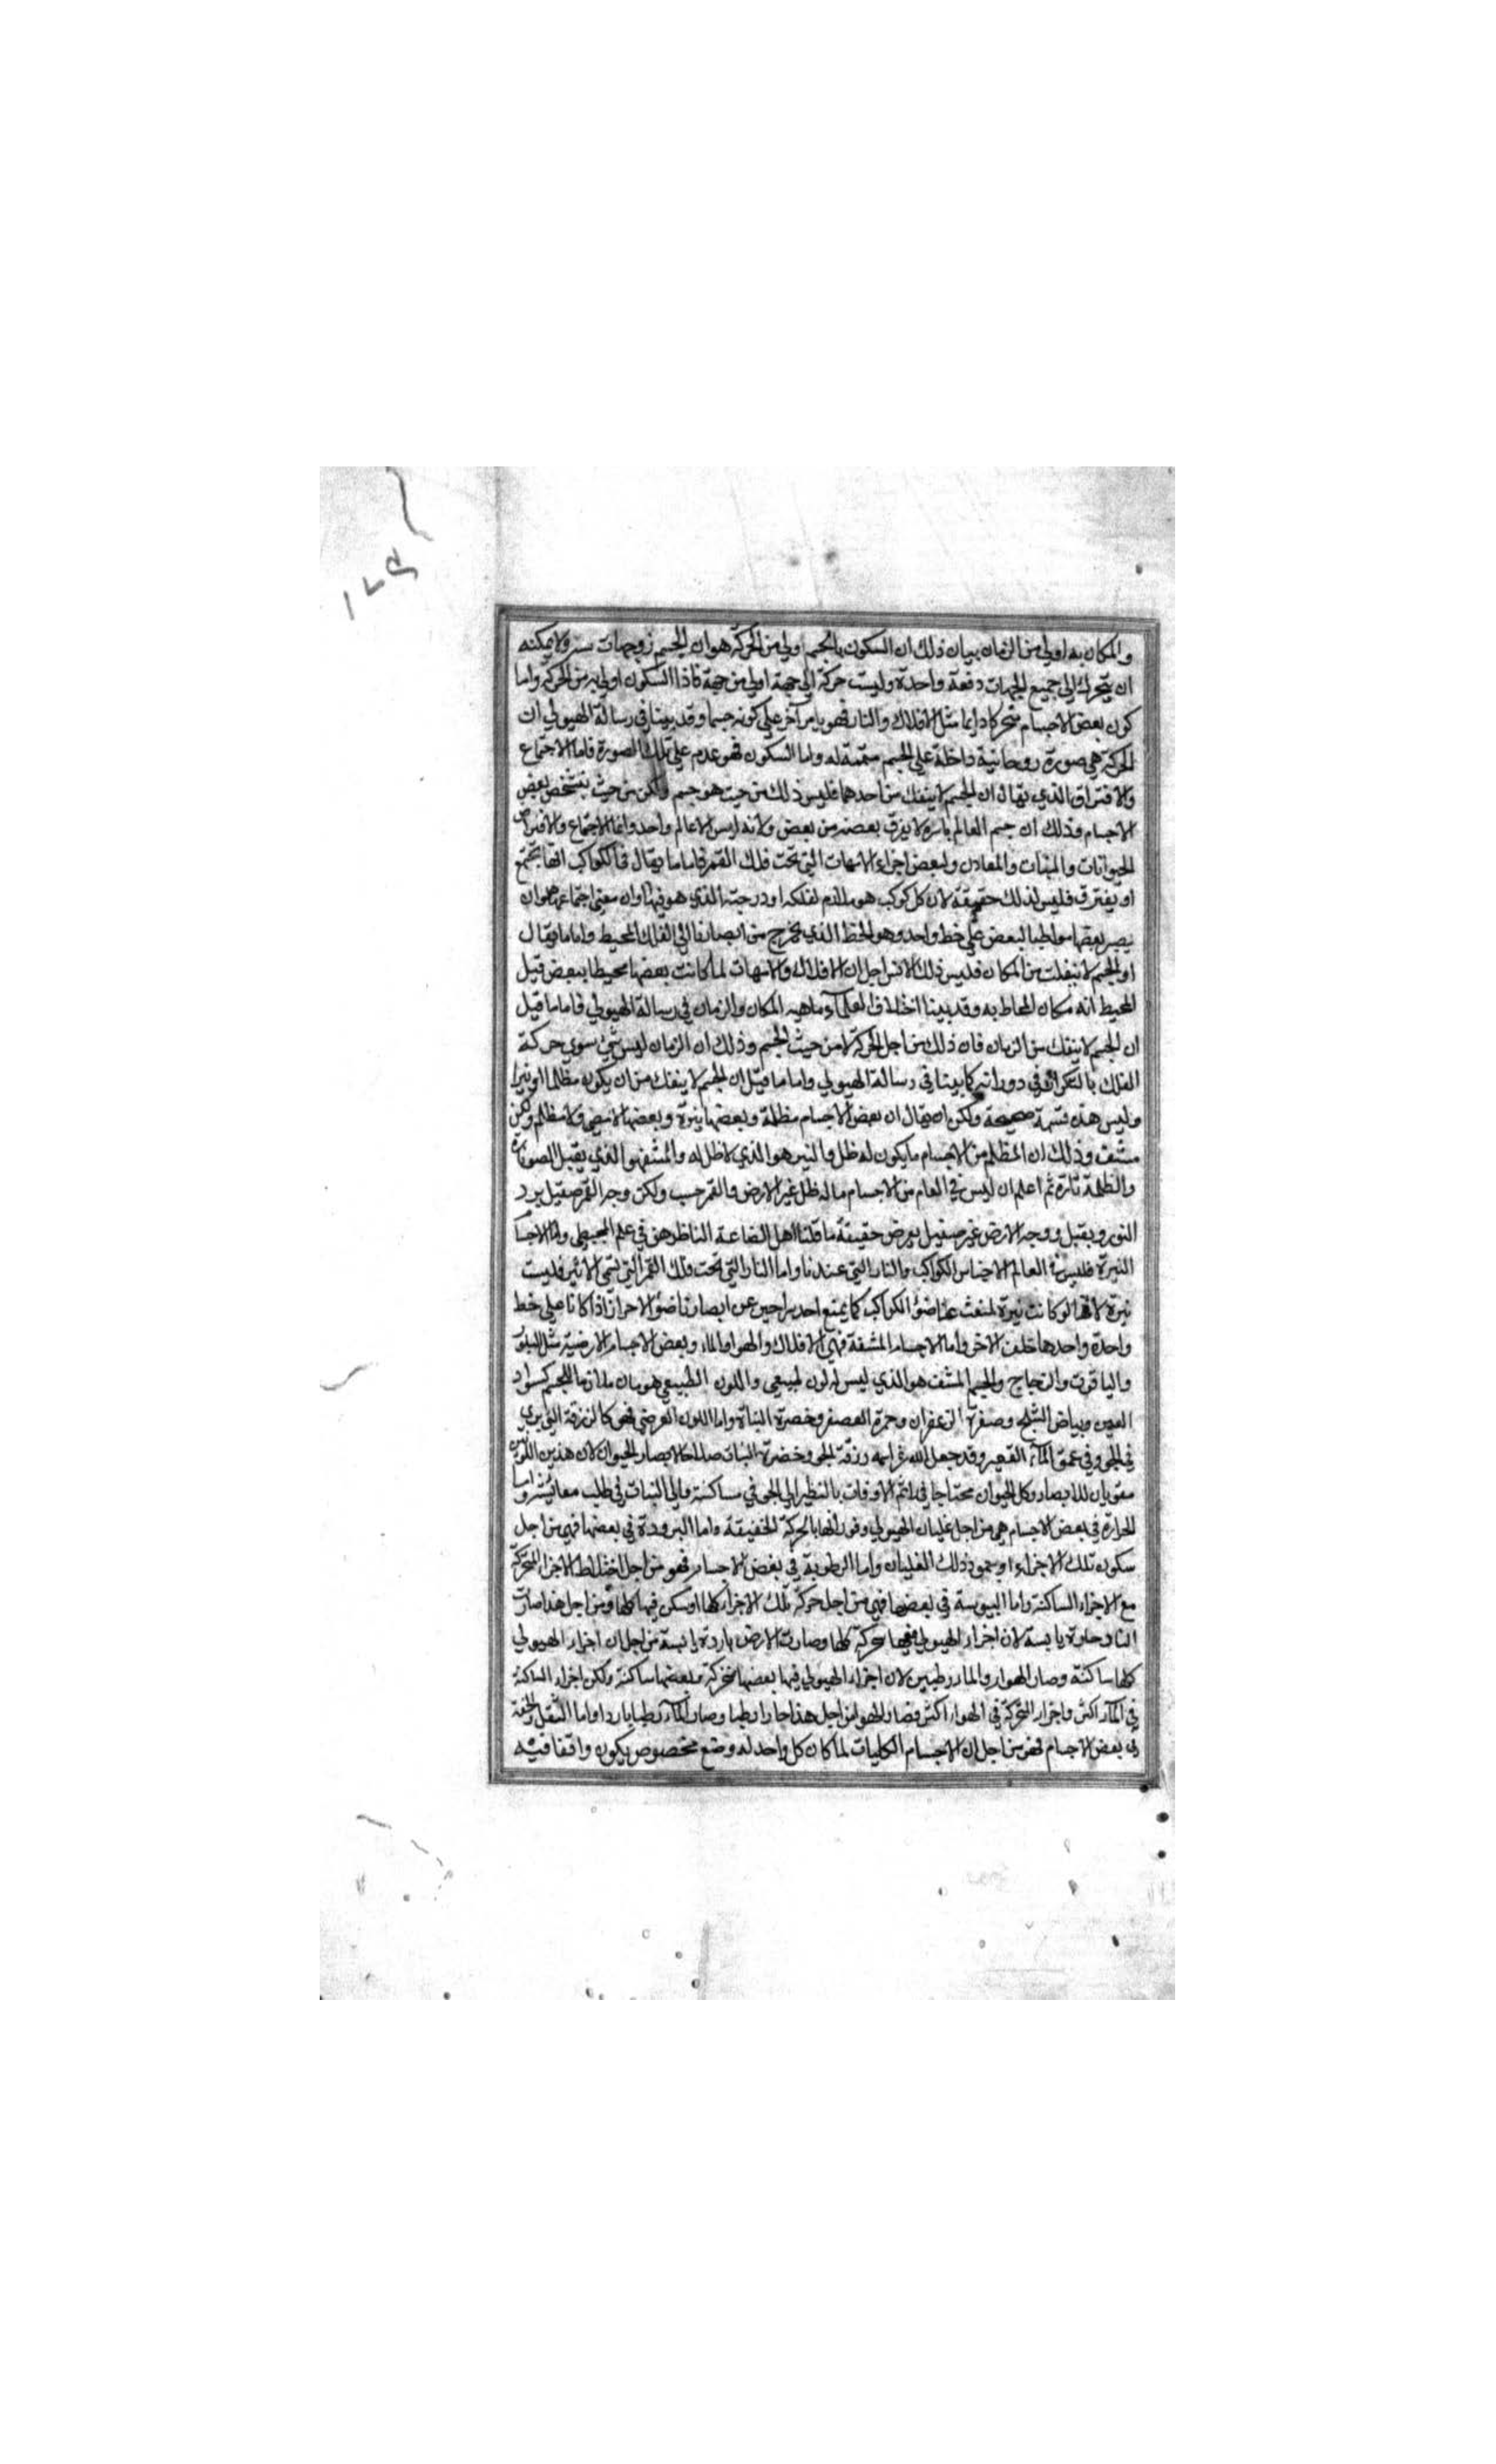 والمكان به اولى من الزمان بيان ذلك ان السكون بالجسم اولى من الحركة هو ان الجسم ذو جهات ست ولا يمكنه
ان يتحرك الى جميع الجهات دفعة واحدة وليست حركة الى جهة اولى من جهة فاذا السكون اولى به من الحركة واما
كون بعض الاجسام متحركا دايما مثل الافلاك والنار فهو بامر آخر على كونه جسما وقد بينا في رسالة الهيولي ان
الحركة هي صورة روحانية داخلة على الجسم متممة له واما السكون فهو عدم على تلك الصورة فاما الاجتماع
والافتراق الذي يقال ان الجسم لا ينفك من احدهما فليس ذلك من حيث هو جسم ولكن من حيث يتشخص بعض
الاجسام وذلك ان جسم العالم باسره لا يفرق بعضه من بعض ولانه ليس الا عالم واحد وانما الاجتماع والافتراق
الحيوانات والنبات والمعادن ولبعض اجزاء الامهات التي تحت فلك القمر فاما ما يقال في الكواكب انها تجتمع
او يفترق فليس لذلك حقيقة لان كل كوكب هو ملازم لفلكه او درجته الذي هو فيها وان معنى اجتماعها هو ان
يصير بعضها مواطيا لبعض على خط واحد وهو الخط الذي يخرج من ابصارنا الى الفلك المحيط واما ما يقال
او الجسم لا ينفك من المكان فليس ذلك الا من اجل ان الافلاك والامهات لما كانت بعضها محيطا ببعض قيل
المحيط انه مكان المحاط به وقد بينا اختلاف العلمآء ماهية المكان والزمان في رسالة الهيولي فاما ما قيل
ان الجسم لا ينفك من الزمان فان ذلك من اجل الحركة لا من حيث الجسم وذلك ان الزمان ليس شئ سوى حركة
الفلك بالتكرار في دورانه كما بينا في رسالة الهيولي واما ما قيل ان الجسم لا ينفك من ان يكون مظلما او نيرا
وليس هذه قسمة صحيحة ولكن يقال ان بعض الاجسام مظلمة وبعضها نيرة وبعضها لا مضي ولا مظلم ولكن
مشف وذلك ان المظلم من الاجسام ما يكون له ظل والنير هو الذي لا ظل له والمشف هو الذي يقبل الضو تارة
والظلمة تارة ثم اعلم ان ليس في العام من الاجسام ما له ظل غير الارض والقمر حسب ولكن وجه القمر صقيل يرد
النور ويقبل ووجه الارض غير صقيل يعرض حقيقة ما قلنا اهل الصناعة الناظرون في علم المجسطي واما الاجسام
النيرة فليس في العالم الا جنس الكواكب والنار التي عندنا واما النار التي تحت فلك القمر التي تسمى الاثير فليست
نيرة لانها لو كانت نيرة لمنعت عنا ضوء الكواكب كما يمنع احد سراجين عن ابصارنا ضوء الاخر اذا كانا على خط
واحدة واحدها خلف الاخر واما الاجسام المشفة فهي الافلاك والهوا والماء وبعض الاجسام الارضية مثل البلور
والياقوت والزجاج والجسم المشف هو الذي ليس له لون طبيعي واللون الطبيعي هو ما كان ملازما للجسم كسواد
العين وبياض الثلج وصفرة الزعفران وحمرة العصفر وخضرة النبات واما اللون العرضي فهو كالزرقة التي يرى
في الجو وفي عمق المآء القعير وقد جعل الله عز اسمه زرقة الجو وخضرة النبات صلاحا لابصار الحيوان لان هذين اللونين
مقويان للابصار وكل الحيوان محتاجا في دائم الاوقات بالنظر الى الجو في مساكنه والى النبات في طلب معائشه واما
الحرارة في بعض الاجسام هي من اجل غليان الهيولي وفورانها بالحركة الخفيفة واما البرودة في بعضها فهي من اجل
سكون تلك الاجزاء او جمود ذلك الغليان واما الرطوبة في بعض الاجسام فهو من اجل اختلاط الاجزاء المتحركة
مع الاجزاء الساكنة واما اليبوسة في بعضها فهي من اجل حركة تلك الاجزاء كلها او سكون فيها كلها ومن اجل هذا صارت
النار حارة يابسة لان اجزاء الهيولي فيها متحركة كلها وصارت الارض باردة يابسة من اجل ان اجزاء الهيولي
كلها ساكنة وصار الهواء والماء رطبين لان اجزاء الهيولي فيها بعضها متحركة وبعضها ساكنة ولكن اجزاء الساكنة
في المآء اكثر واجزاء المتحركة في الهواء اكثر فصار الهوا من اجل هذا حارا رطبا وصار المآء رطبا باردا واما الثقل والخفة
في بعض الاجسام فهو من اجل ان الاجسام الكليات لما كان كل واحد له وضع مخصوص يكون واقفا فيه